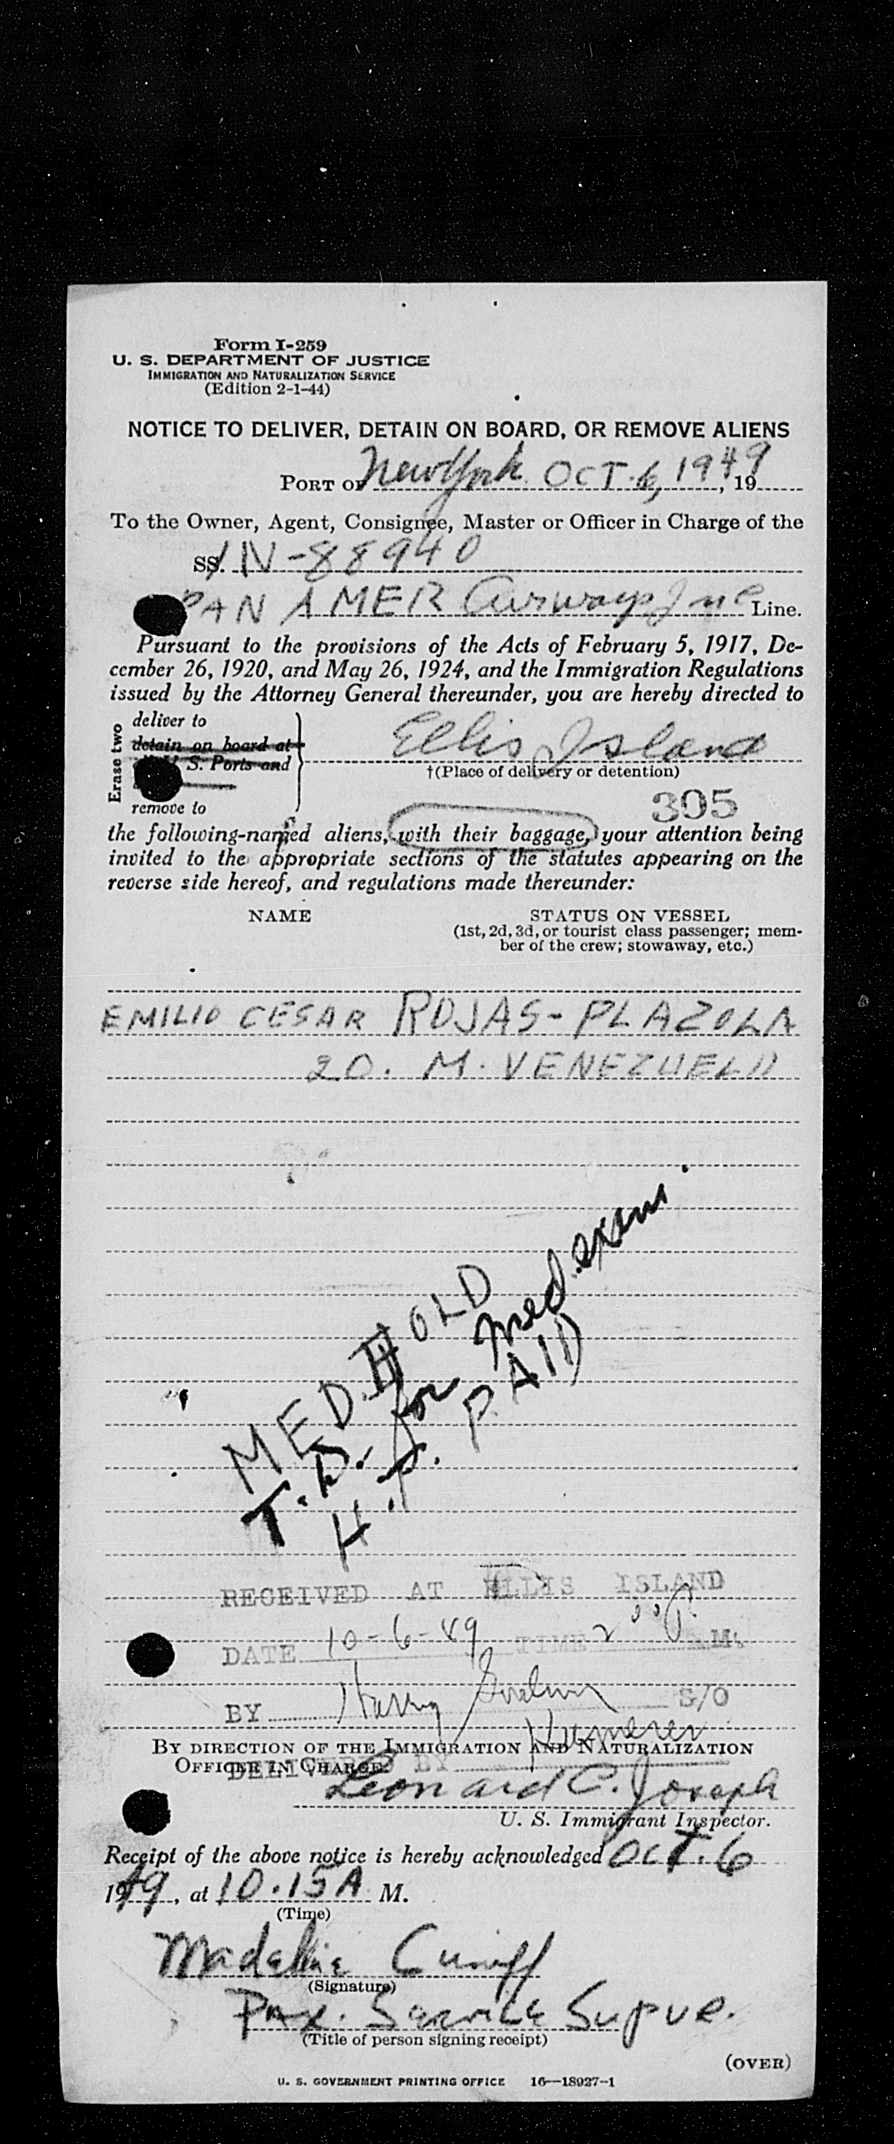 Form I-259
U. S. DEPARTMENT OF JUSTICE
IMMIGRATION AND NATURALIZATION SERVICE
(Edition 2-1-44)
NOTICE TO DELIVER, DETAIN ON BOARD, OR REMOVE ALIENS
PORT OF New York OCT. 6, 1949, 19
To the Owner, Agent, Consignee, Master or Officer in Charge of the
SS. N-88940
PAN AMER Airways Inc Line.
Pursuant to the provisions of the Acts of February 5, 1917, De-
cember 26, 1920, and May 26, 1924, and the Immigration Regulations
issued by the Attorney General thereunder, you are hereby directed to
Erase two
deliver to
detain on board at
S. Ports and
remove to
Ellis Island
†(Place of delivery or detention)
305
the following-named aliens, with their baggage, your attention being
invited to the appropriate sections of the statutes appearing on the
reverse side hereof, and regulations made thereunder:
NAME STATUS ON VESSEL
(1st, 2d, 3d, or tourist class passenger; mem-
ber of the crew; stowaway, etc.)
EMILIO CESAR ROJAS-PLAZOLA
20. M. VENEZUELA
MED. HOLD
T.D. for Med exam.
H.P. PAID
RECEIVED AT ELLIS ISLAND
DATE 10-6-49 TIME 2 00 P. M.
BY Harry S/O
DELIVERED BY
BY DIRECTION OF THE IMMIGRATION AND NATURALIZATION
OFFICER IN CHARGE
Leonard C. Joseph
U. S. Immigrant Inspector.
Receipt of the above notice is hereby acknowledged OCT. 6
1949, at 10.15 A M.
(Time)
Madeline Cuniff
(Signature)
Pax. Service Supve.
(Title of person signing receipt)
(OVER)
U. S. GOVERNMENT PRINTING OFFICE 16—18927-1